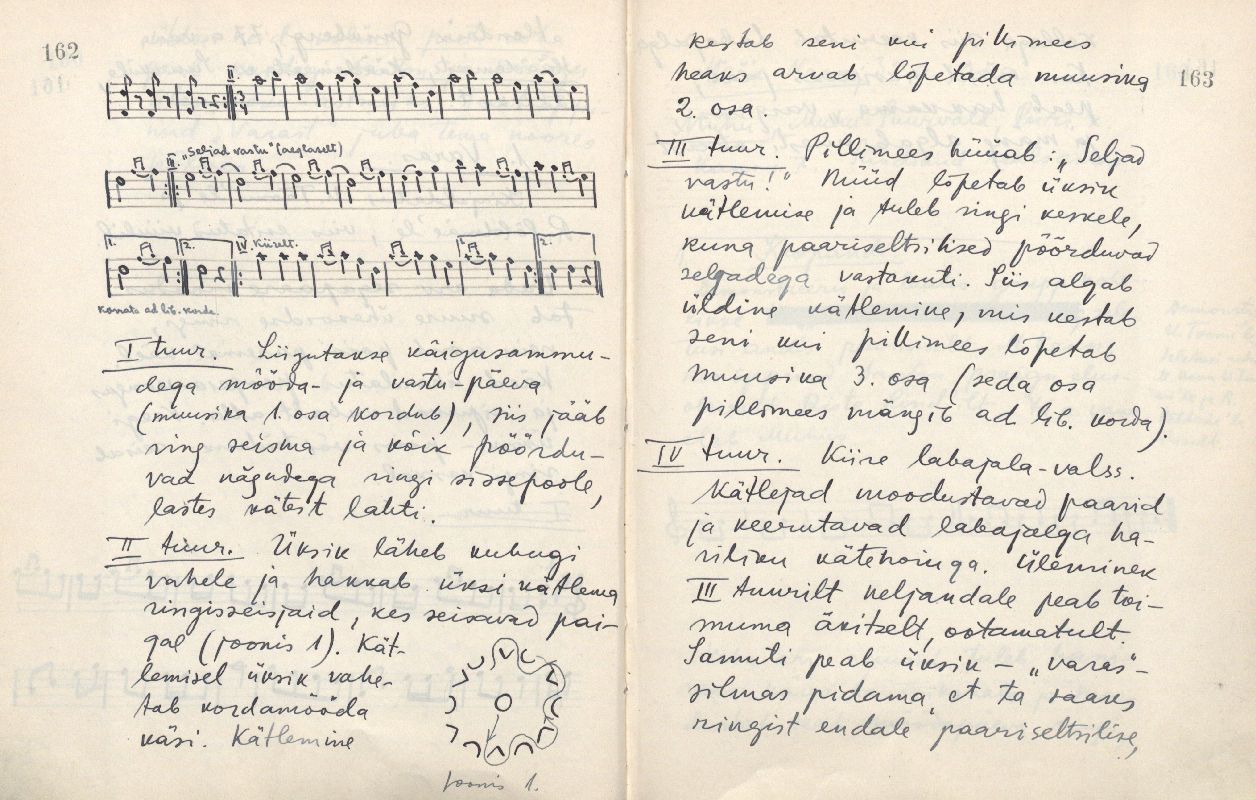 162
II
3 4
III. „Seljad vastu" (aeglaselt)
1.
2.
IV. Kiirelt.
1.
2.
Korrata ad lib. korda.
I tuur. Liigutakse käigusammu-
dega mööda- ja vastu-päeva
(muusika 1. osa kordub), siis jääb
ring seisma ja kõik pöördu-
vad nägudega ringi sissepoole,
lastes kätest lahti.
II tuur. Üksik läheb kuhugi
vahele ja hakkab üksi kätlema
ringisseisjaid, kes seisavad pai-
gal (joonis 1). Kät-
lemisel üksik vahe-
tab kordamööda
käsi. Kätlemine
joonis 1.
163
kestab seni kui pillimees
heaks arvab lõpetada muusika
2. osa.
III tuur. Pillimees hüüab: „Seljad
vastu!" Nüüd lõpetab üksik
kätlemise ja tuleb ringi keskele,
kuna paariseltsilised pöörduvad
selgadega vastakuti. Siis algab
üldine kätlemine, mis kestab
seni kui pillimees lõpetab
muusika 3. osa (seda osa
pillimees mängib ad lib. korda).
IV tuur. Kiire labajala-valss.
Kätlejad moodustavad paarid
ja keerutavad labajalga ha-
riliku kätehoiuga. Üleminek
III tuurilt neljandale peab toi-
muma äkitselt, ootamatult.
Samuti peab üksik – „varas" –
silmas pidama, et ta saaks
ringist endale paariseltsilise,